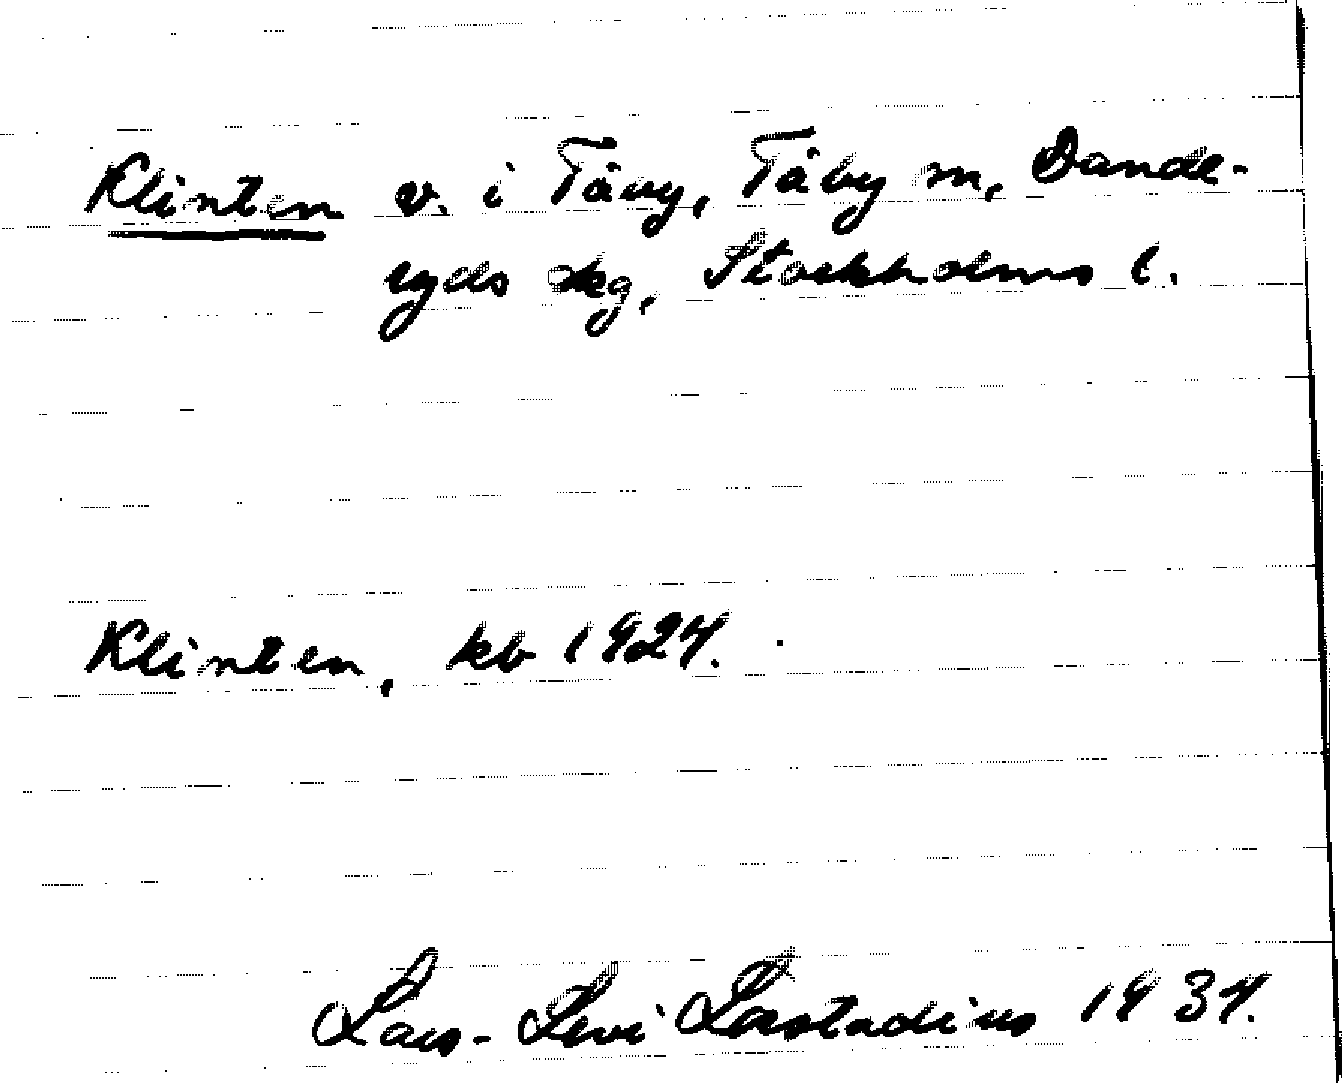 Klinten v. i Täby, Täby sn, Dande-
ryds skg, Stockholms l.
Klinten, kb 1927.
Lars-Levi Læstadius 1937.